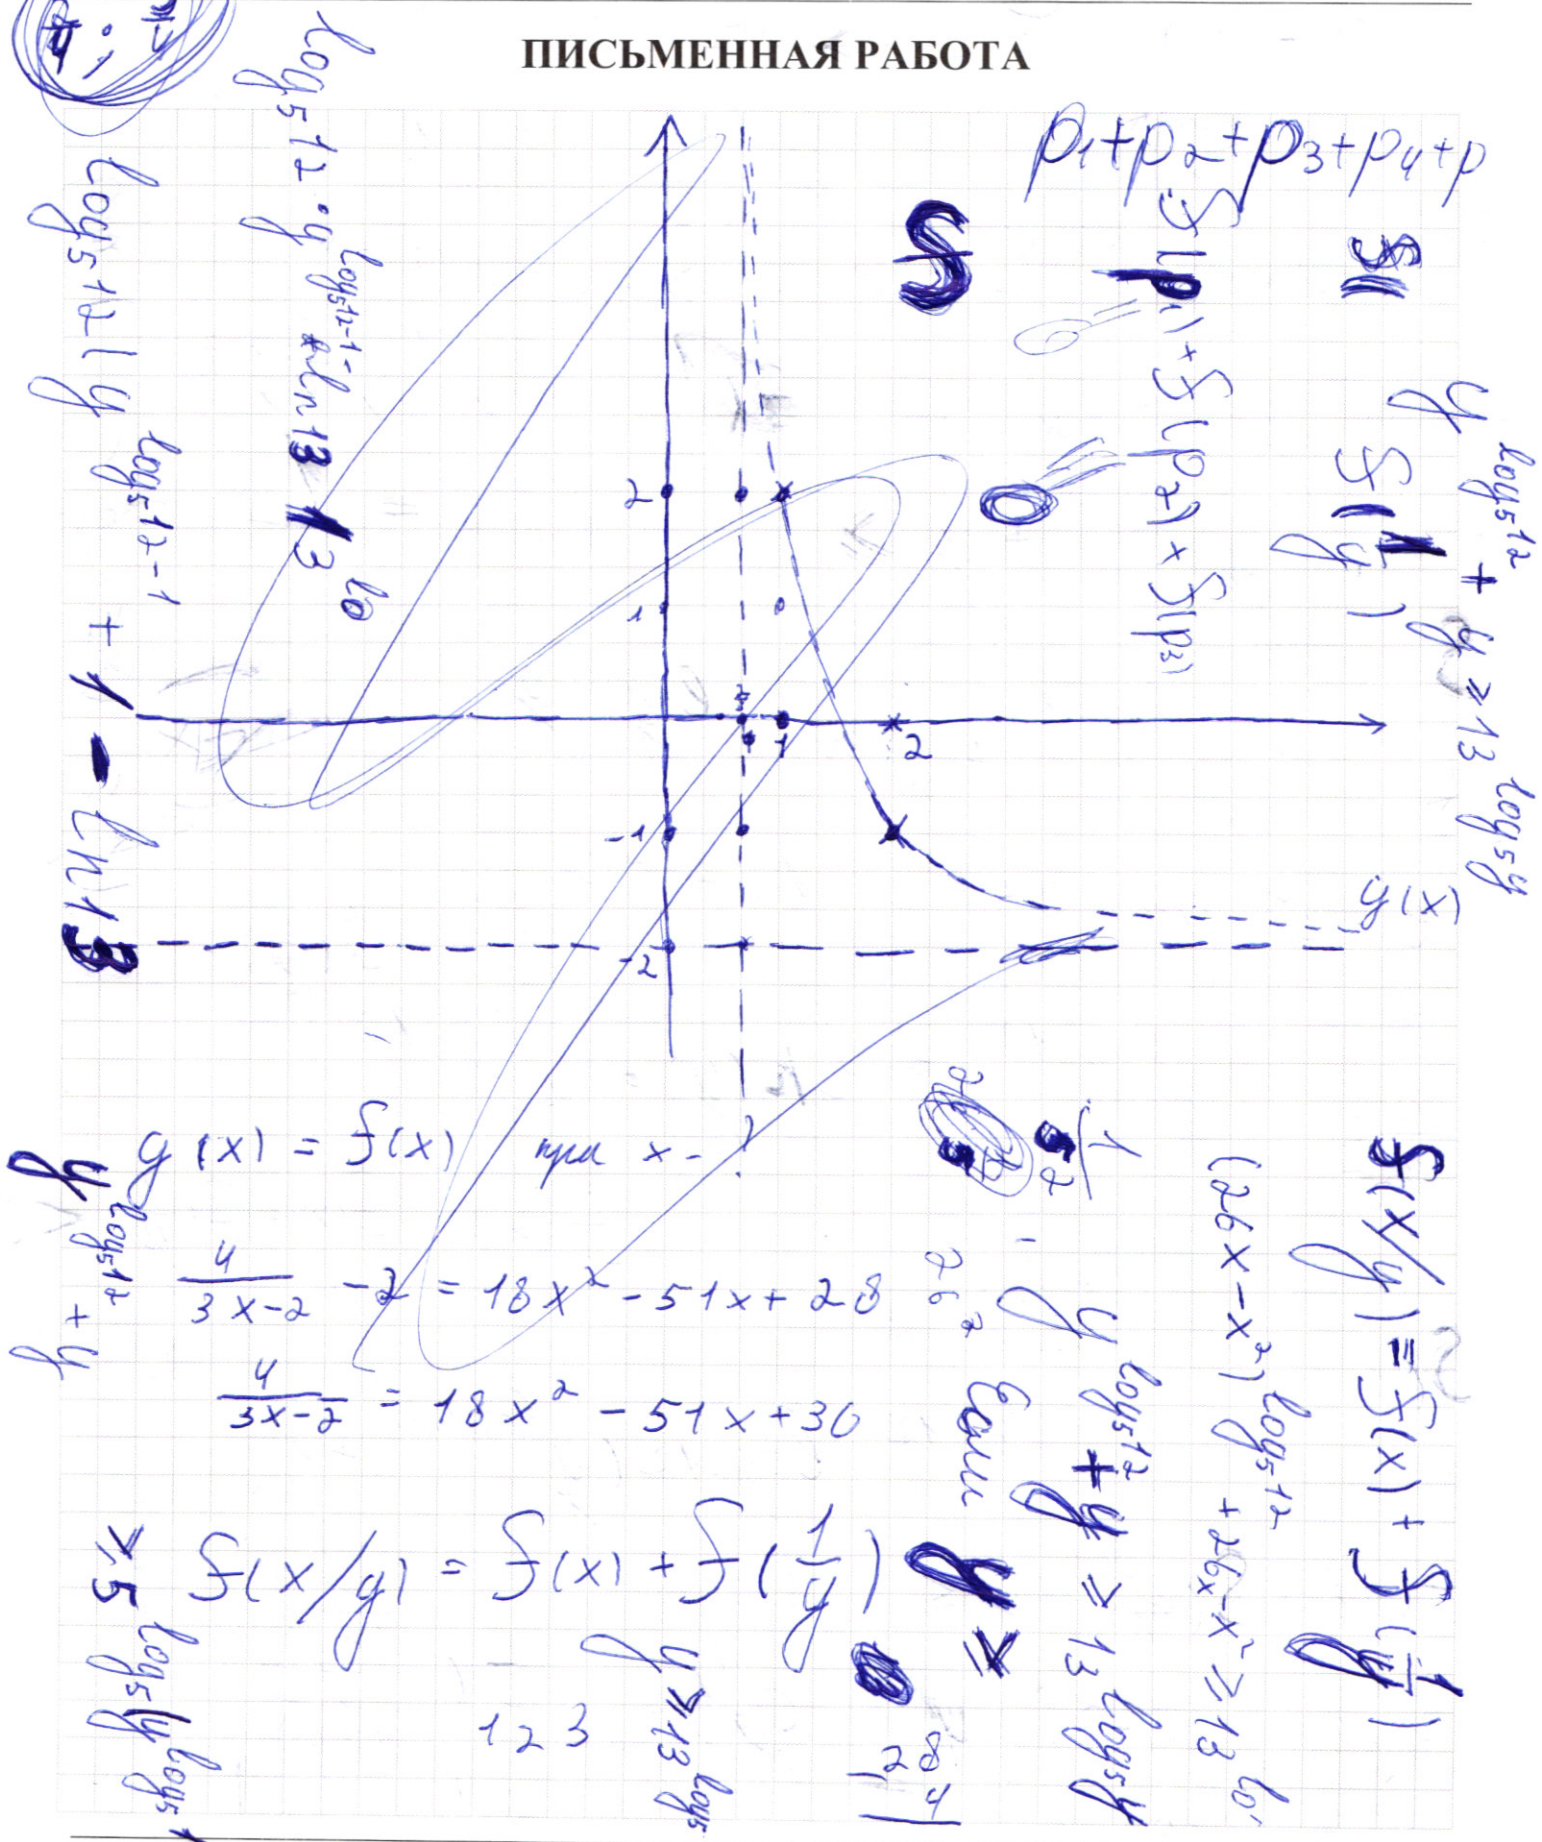 ПИСЬМЕННАЯ РАБОТА
p₁+p₂+p₃+p₄+p
f(p₁) × f(p₂) × f(p₃)
f(1/y)
y^{log₅12} + y ≥ 13^{log₅y}
log₅12 · y^{log₅12-1} ln13 13^{lo
log₅12(y^{log₅12-1} + 1 - ln13
2
1
1
2
-1
-2
g(x)
g(x) = f(x) при x - ?
4/(3x-2) - 2 = 18x² - 51x + 28
4/(3x-2) = 18x² - 51x + 30
f(x/y) = f(x) + f(1/y)
123
y ≥ 13^{log₅
28
4
y^{log₅12} + y
≥ 5^{log₅(y^{log₅1
26²
Если
y^{log₅12} + y ≥ 13^{log₅y}
(26x-x²)^{log₅12} + 26x-x² ≥ 13^{lo
f(x/y) = f(x) + f(1/y)